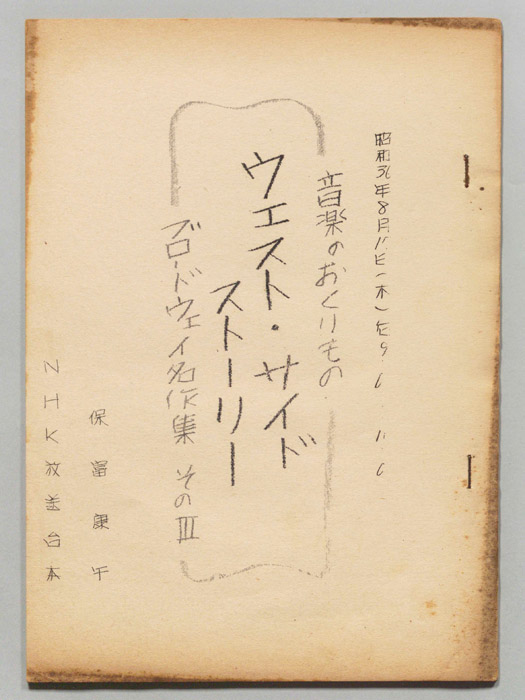 昭和36年8月 日(木)
音楽のおくりもの
ウエスト・サイド
ストーリー
ブロードウェイ名作集 そのIII
保富康午
NHK放送台本